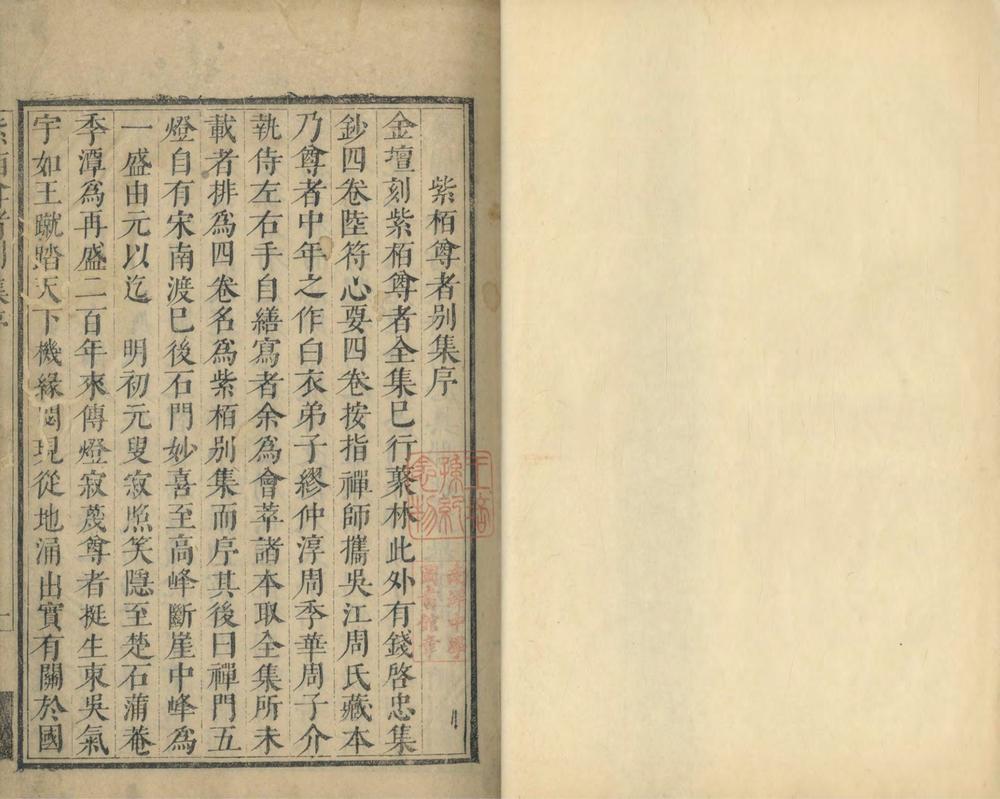 紫栢尊者別集序
金壇刻紫栢尊者全集已行叢林此外有錢啓忠集
鈔四卷陸符心要四卷按指禪師攜吳江周氏藏本
乃尊者中年之作白衣弟子繆仲淳周季華周子介
執侍左右手自繕寫者余為會萃諸本取全集所未
載者排為四卷名為紫栢別集而序其後曰禪門五
燈自有宋南渡已後石門妙喜至高峰斷崖中峰為
一盛由元以迄　明初元叟寂照笑隱至楚石蒲菴
季潭為再盛二百年來傳燈寂蔑尊者挺生東吳氣
宇如王蹴踏天下機緣閎現從地涌出實有關於國
紫栢尊者別集序
一